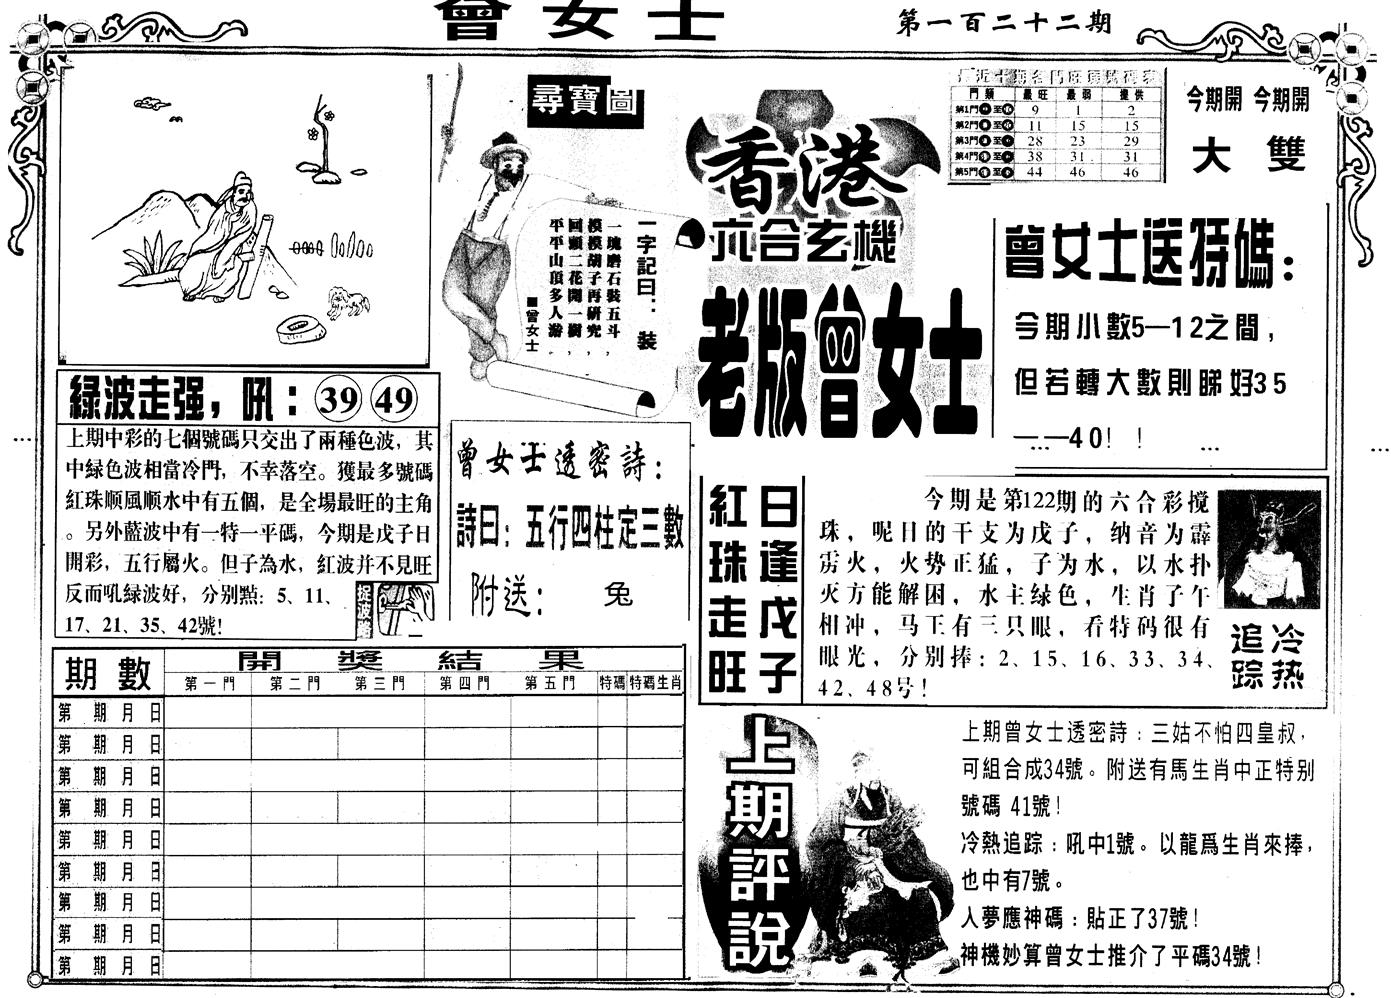 曾女士
第一百二十二期
尋寶圖
一字記曰：裝
一塊磨石裝五斗，
摸摸胡子再研究，
回頭二花開一樹，
平平山頂多人游
■曾女士
香港
六合玄機
老版曾女士
門類 最旺 最弱 提供
第1門 至 9 1 2
第2門 至 11 15 15
第3門 至 28 23 29
第4門 至 38 31 31
第5門 至 44 46 46
今期開 今期開
大 雙
曾女士送特碼：
今期小數5—12之間，
但若轉大數則睇好35
——40！！
綠波走强，吼：39 49
上期中彩的七個號碼只交出了兩種色波，其
中緑色波相當冷門，不幸落空。獲最多號碼
紅珠顺風顺水中有五個，是全場最旺的主角
。另外藍波中有一特一平碼，今期是戊子日
開彩，五行屬火。但子為水，紅波并不見旺
反而吼緑波好，分别點：5、11、
17、21、35、42號!
曾女士透密詩：
詩曰：五行四柱定三數
附送： 兔
紅珠走旺
日逢戊子
今期是第122期的六合彩搅
珠，呢日的干支为戊子，纳音为霹
雳火，火势正猛，子为水，以水扑
灭方能解困，水主绿色，生肖子午
相冲，马王有三只眼，看特码很有
眼光，分别捧：2、15、16、33、34、
42、48号！
追踪
冷热
期數 開獎結果
第一門 第二門 第三門 第四門 第五門 特碼 特碼生肖
第 期 月 日
第 期 月 日
第 期 月 日
第 期 月 日
第 期 月 日
第 期 月 日
第 期 月 日
第 期 月 日
第 期 月 日
上期評說
上期曾女士透密詩：三姑不怕四皇叔，
可組合成34號。附送有馬生肖中正特别
號碼 41號！
冷熱追踪：吼中1號。以龍爲生肖來捧，
也中有7號。
人夢應神碼：貼正了37號！
神機妙算曾女士推介了平碼34號！